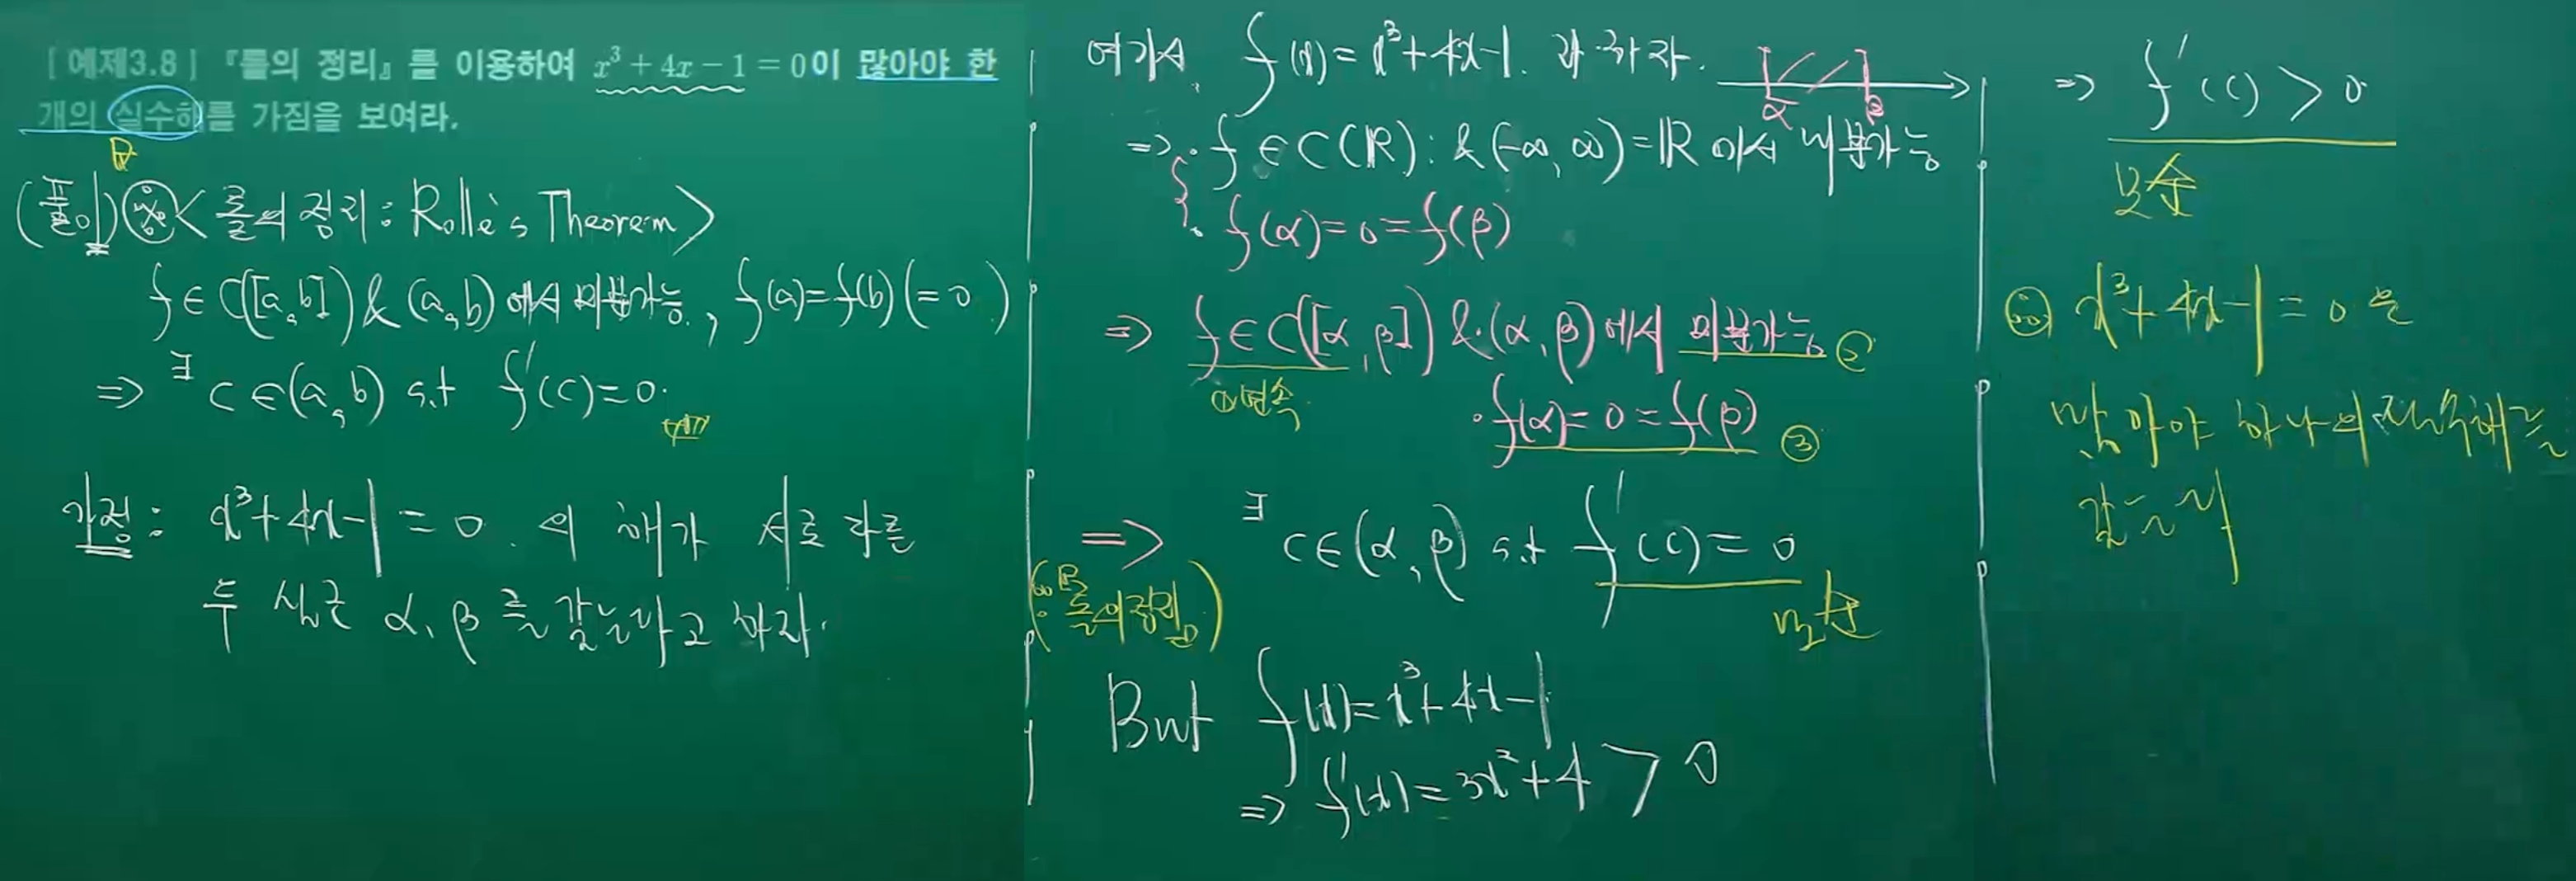 [ 예제3.8 ] 『롤의 정리』를 이용하여 x³ + 4x − 1 = 0이 많아야 한
개의 실수해를 가짐을 보여라.
(풀이) < 롤의 정리 : Rolle's Theorem >
f ∈ C([a, b]) & (a, b) 에서 미분가능, f(a) = f(b) (= 0)
⇒ ∃ c ∈ (a, b) s.t f'(c) = 0.
가정 : x³ + 4x − 1 = 0 의 해가 서로 다른
두 실근 α, β 를 갖는다고 하자.
여기서 f(x) = x³ + 4x − 1. 라 하자.
α β
⇒ · f ∈ C(ℝ) : & (−∞, ∞) = ℝ 에서 미분가능
· f(α) = 0 = f(β)
⇒ f ∈ C([α, β]) & (α, β) 에서 미분가능 ②
① 연속
· f(α) = 0 = f(β) ③
⇒ ∃ c ∈ (α, β) s.t f'(c) = 0
(∵ 롤의 정리) 모순
But f(x) = x³ + 4x − 1
⇒ f'(x) = 3x² + 4 > 0
⇒ f'(c) > 0
모순
∴ x³ + 4x − 1 = 0 은
많아야 하나의 실수해를
갖는다